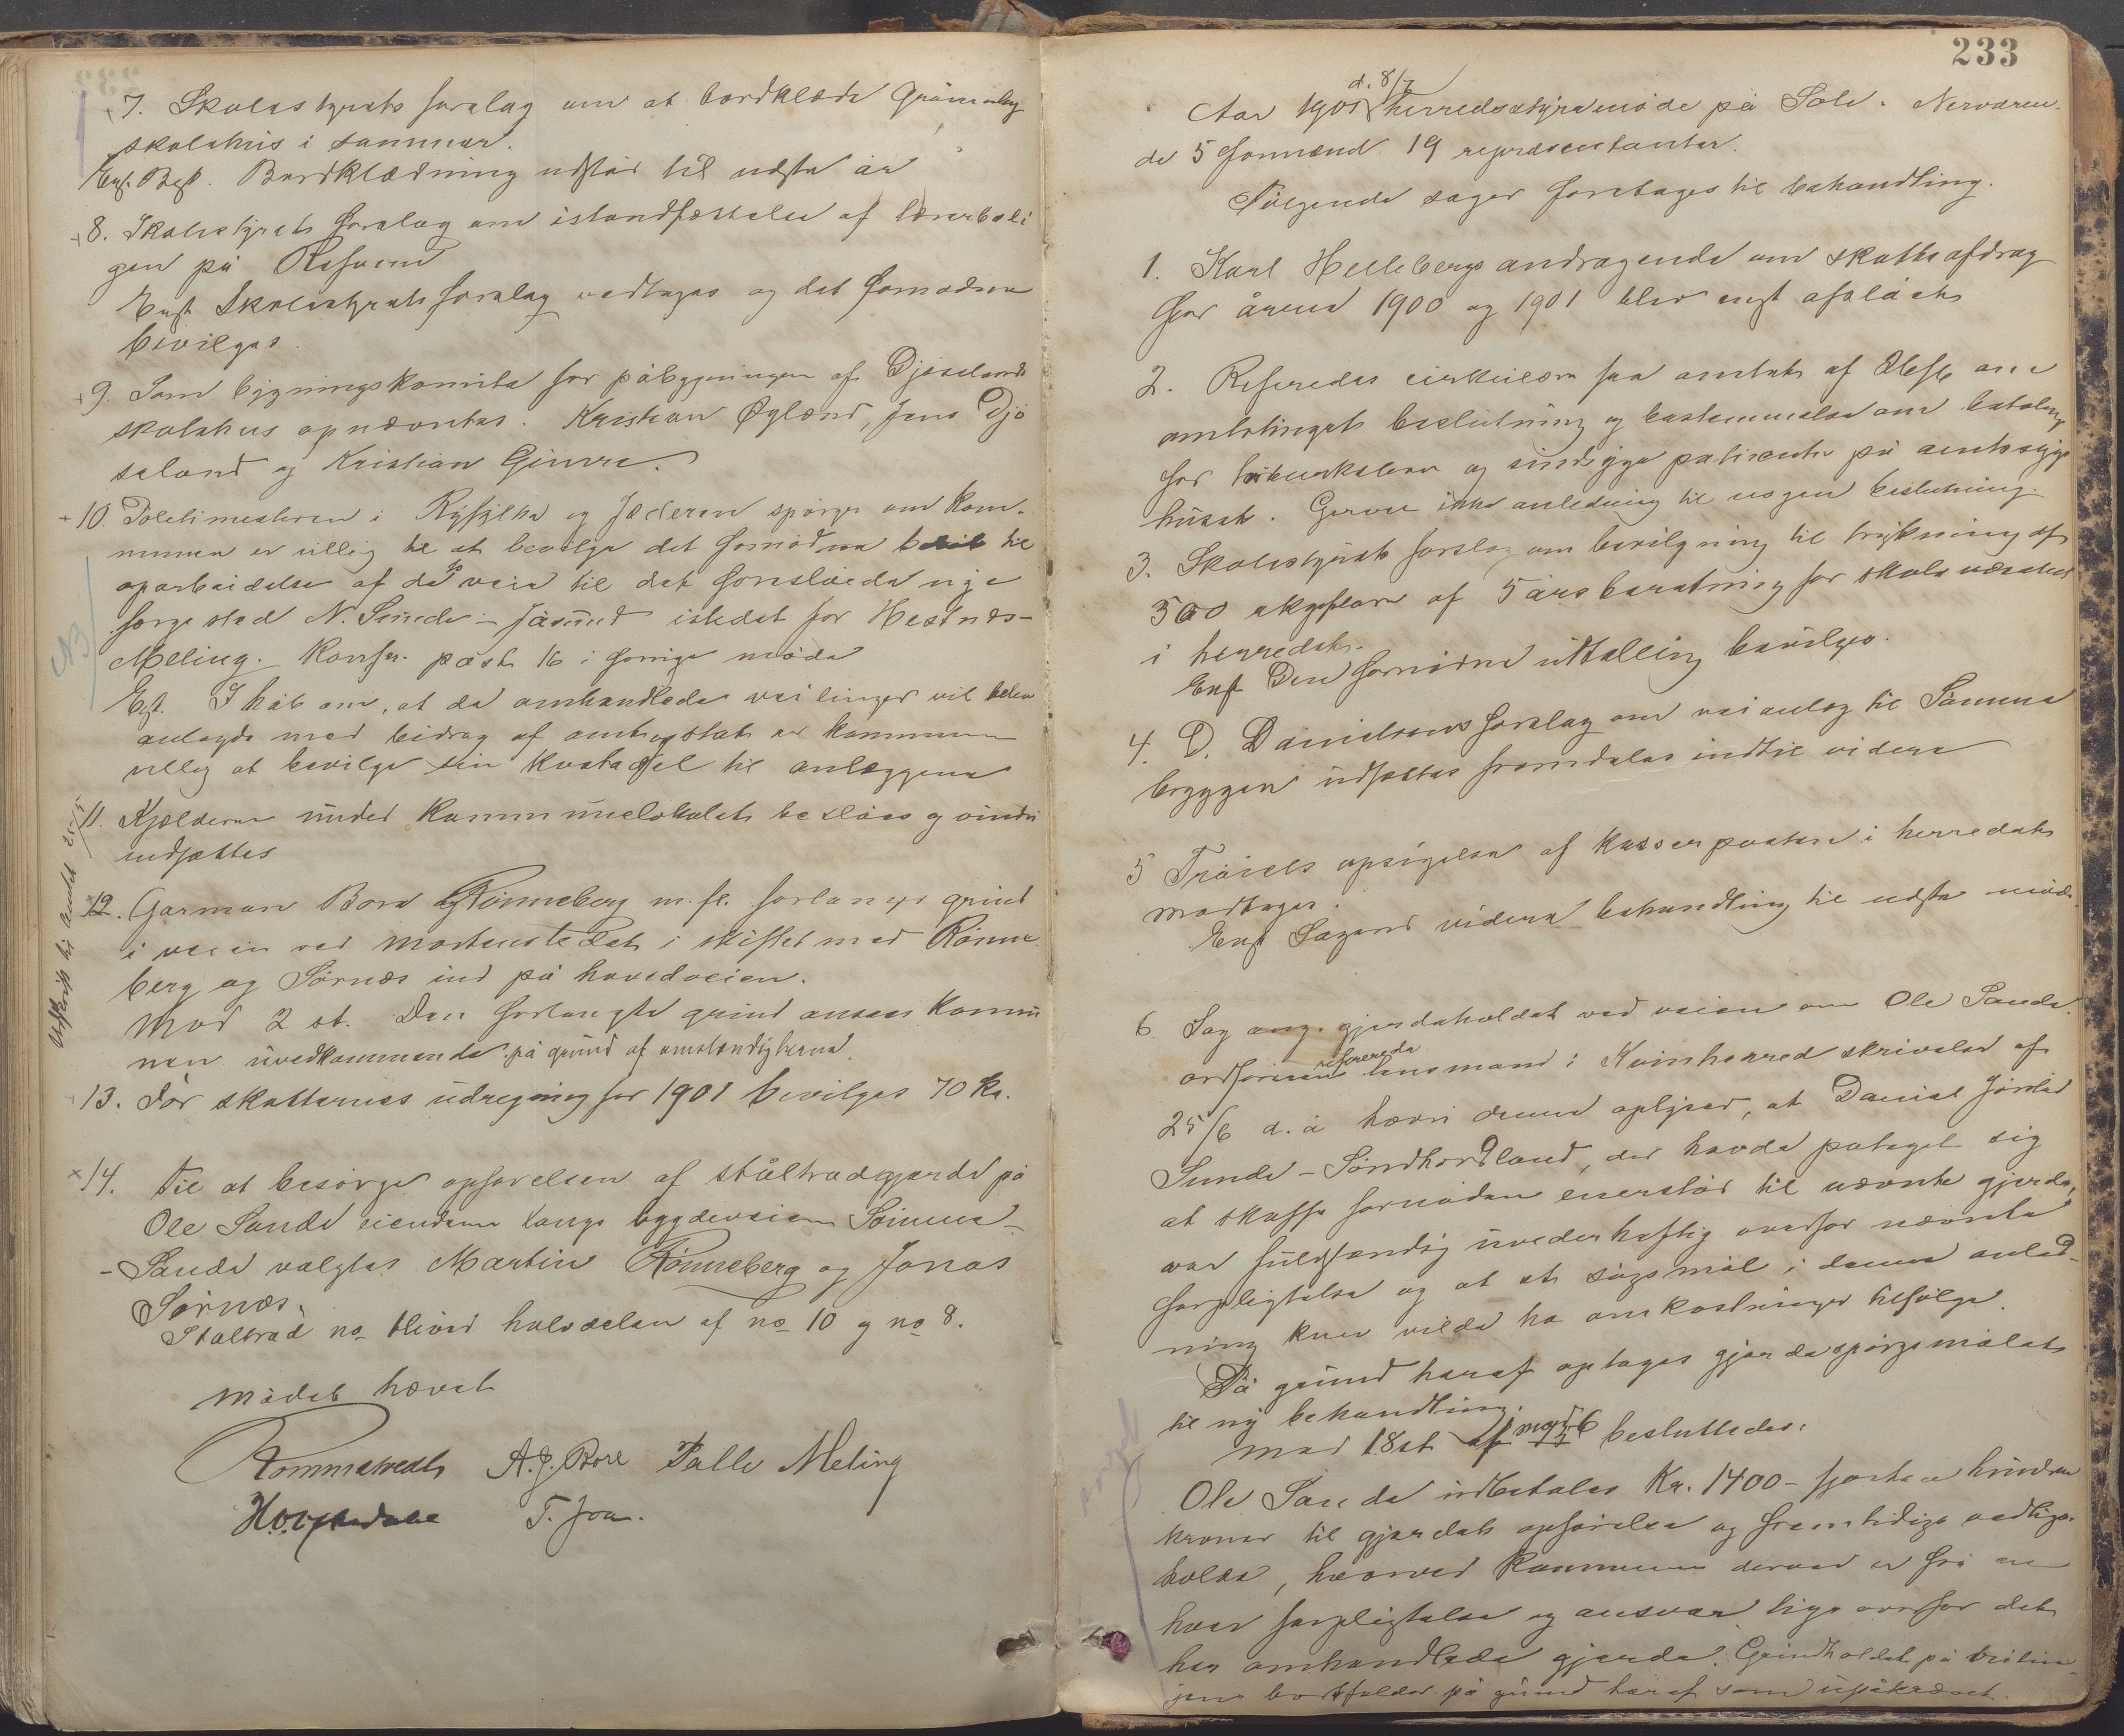 7. Skolestyrets forslag om at bordklæde Grannes
skolehus i sommer.
Enst. Besl. Bordklædning udstår til næste år
8. Skolestyrets forslag om istandsættelse af lærerboli
gen på Ræge
Enst. Skolestyrets forslag vedtages og det fornødne
bevilges.
9. Som bygningskomite for påbygningen af Djøselands
skolehus opnævntes. Kristian Øglænd, Jens Djø
seland og Kristian Gimre.
10. Politimesteren i Ryfylke og Jæderen spørger om kom-
munen er villig til at bevilge det fornødne til
oparbeidelse af de to veie til det foreslåede nye
færgested N. Sunde - Jåsund istedet for Hestnes-
Meling. Konfer. post 16 i forrige møde
NB
Enst. I håb om, at de omhandlede veilinjer vil blive
anlagde med bidrag af amt og stat er kommunen
villig at bevilge sin kvotadel til anlæggene
11. Kjælderen under kommunelokalet beslåes og vindu
indsættes
Udskrift til amtet 25/5
12. Garman Bore Rønneberg m. fl. forlanger grind
i veien ved mortenstedet i skiftet med Rønne
berg og Sørnes ind på hovedveien.
Mod 2 st. Den forlangte grind ansees kommu
nen uvedkommende på grund af omstændighederne.
13. For skatternes udregning for 1901 bevilges 70 kr.
14. Til at besørge opførelsen af ståltradgjerde på
Ole Sande eiendom langs bygdeveien Sømme-
- Sande valgtes Martin Rønneberg og Jonas
Sørnes.
Staltrad no bliver halvdelen af no 10 og no 8.
Mødet hævet
Rommetvedt A. J. Bore Palle Meling
T. Joa.
233
Aar 1901 d. 8/7 herredsstyremøde på Sole. Nerværen-
de 5 formænd 19 repræsentanter.
Følgende sager foretages til behandling.
1. Karl Hellebergs andragende om skatteafdrag
for årene 1900 og 1901 blev enst afslået
2. Referedes cirkulære fra amtet af om
amtstingets beslutning og bestemmelse om betaling
for tuberkuløse og sindsyge patienter på amtssyge
huset. Gav ikke anledning til nogen beslutning.
3. Skolestyrets forslag om bevilgning til trykning af
300 eksplar af 5 årsberetning for skolevæsenet
i herredet.
Enst Den fornødne uttælling bevilges.
4. D. Danielsens forslag om veianlæg til Sømme
bryggen udsættes fremdeles indtil videre
5 Trøiels opsigelse af kasserposten i herredet
modtages.
Enst Sagens videre behandling til næste møde.
6. Sag ang. gjerdeholdet ved veien om Ole Sande.
ordføreren refererede lensmand i Kvinherred skrivelse af
25/6 d. å hvori denne oplyser, at Daniel
Sunde - Søndhordland, der havde pataget sig
at skaffe fornøden enerstør til nævnte gjerde,
var fuldstændig uvederhæftig overfor nævnte
forpligtelse og at et søgsmål i denne anled-
ning kun vilde ha omkostninger tilfølge.
På grund heraf optages gjerdespørgsmålet
til ny behandling.
Med 18 st mod 6 besluttedes:
Ole Sande udbetales Kr. 1400 - fjorten hundre
kroner til gjerdets opførelse og fremtidige vedlige-
holde, hvorved kommunen derved er fri en
hver forpligtelse og ansvar lige overfor det
her omhandlede gjerde. Grindholdet på veilin-
jen bortfalder på grund heraf som upåkrævet.